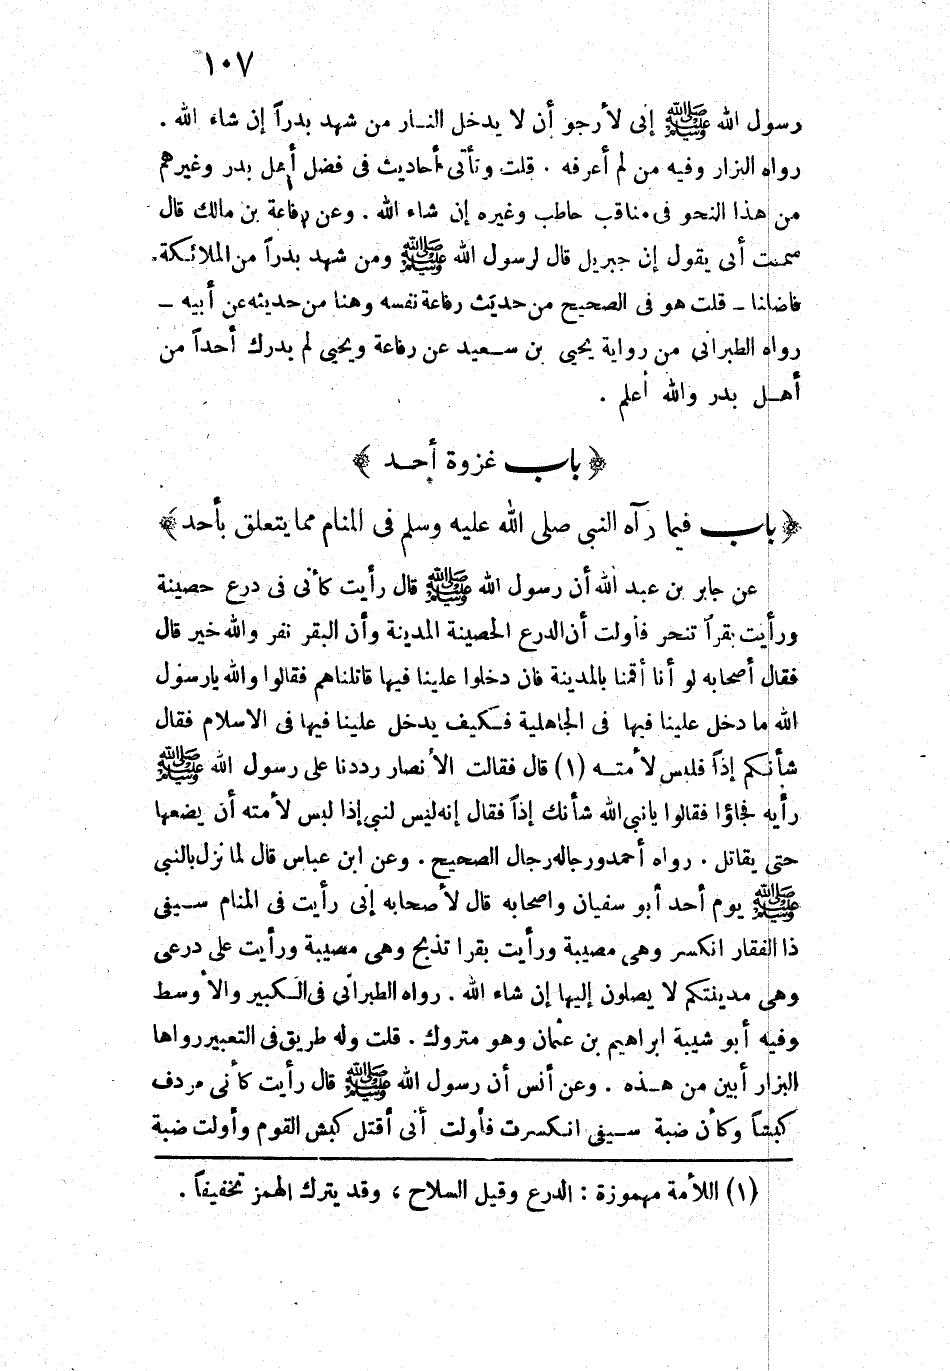 ١٠٧
رسول الله ﷺ إنى لأرجو أن لا يدخل النـار من شهد بدراً إن شاء الله .
رواه البزار وفيه من لم أعرفه . قلت وتأتى أحاديث فى فضل أهل بدر وغيرهم
من هذا النحو فى مناقب حاطب وغيره إن شاء الله . وعن رفاعة بن مالك قال
سمعت أبى يقول إن جبريل قال لرسول الله ﷺ ومن شهد بدراً من الملائكة.
فاضلنا ــ قلت هو فى الصحيح من حديث رفاعة نفسه وهنا من حديثه عن أبيه ــ
رواه الطبرانى من رواية يحيى بن سـعيد عن رفاعة ويحيى لم يدرك أحداً من
أهـل بدر والله أعلم .
﴿ باب غزوة أحـد ﴾
﴿باب فيما رآه النبى صلى الله عليه وسلم فى المنام مما يتعلق بأحد﴾
عن جابر بن عبد الله أن رسول الله ﷺ قال رأيت كأنى فى درع حصينة
ورأيت بقراً تنحر فأولت أن الدرع الحصينة المدينة وأن البقر نفر والله خير قال
فقال أصحابه لو أنا أقمنا بالمدينة فان دخلوا علينا فيها قاتلناهم فقالوا والله يارسول
الله ما دخل علينا فيها فى الجاهلية فـكيف يدخل علينا فيها فى الاسلام فقال
شأنكم إذاً فلبس لأمتـه (١) قال فقالت الأنصار رددنا على رسول الله ﷺ
رأيه فجاؤا فقالوا يانبى الله شأنك إذاً فقال إنه ليس لنبى إذا لبس لأمته أن يضعها
حتى يقاتل . رواه أحمد ورجاله رجال الصحيح . وعن ابن عباس قال لما نزل بالنبى
ﷺ يوم أحد أبو سفيان واصحابه قال لأصحابه إنى رأيت فى المنام سـيفى
ذا الفقار انكسر وهى مصيبة ورأيت بقرا تذبح وهى مصيبة ورأيت على درعى
وهى مدينتكم لا يصلون إليها إن شاء الله . رواه الطبرانى فى الـكبير والأوسط
وفيه أبو شيبة ابراهيم بن عثمان وهو متروك . قلت وله طريق فى التعبير رواها
البزار أبين من هـذه . وعن أنس أن رسول الله ﷺ قال رأيت كأنى مردف
كبشاً وكأن ضبة سـيفى انـكسرت فأولت أنى أقتل كبش القوم وأولت ضبة
(١) اللأمة مهموزة : الدرع وقيل السلاح ، وقد يترك الهمز تخفيفاً .